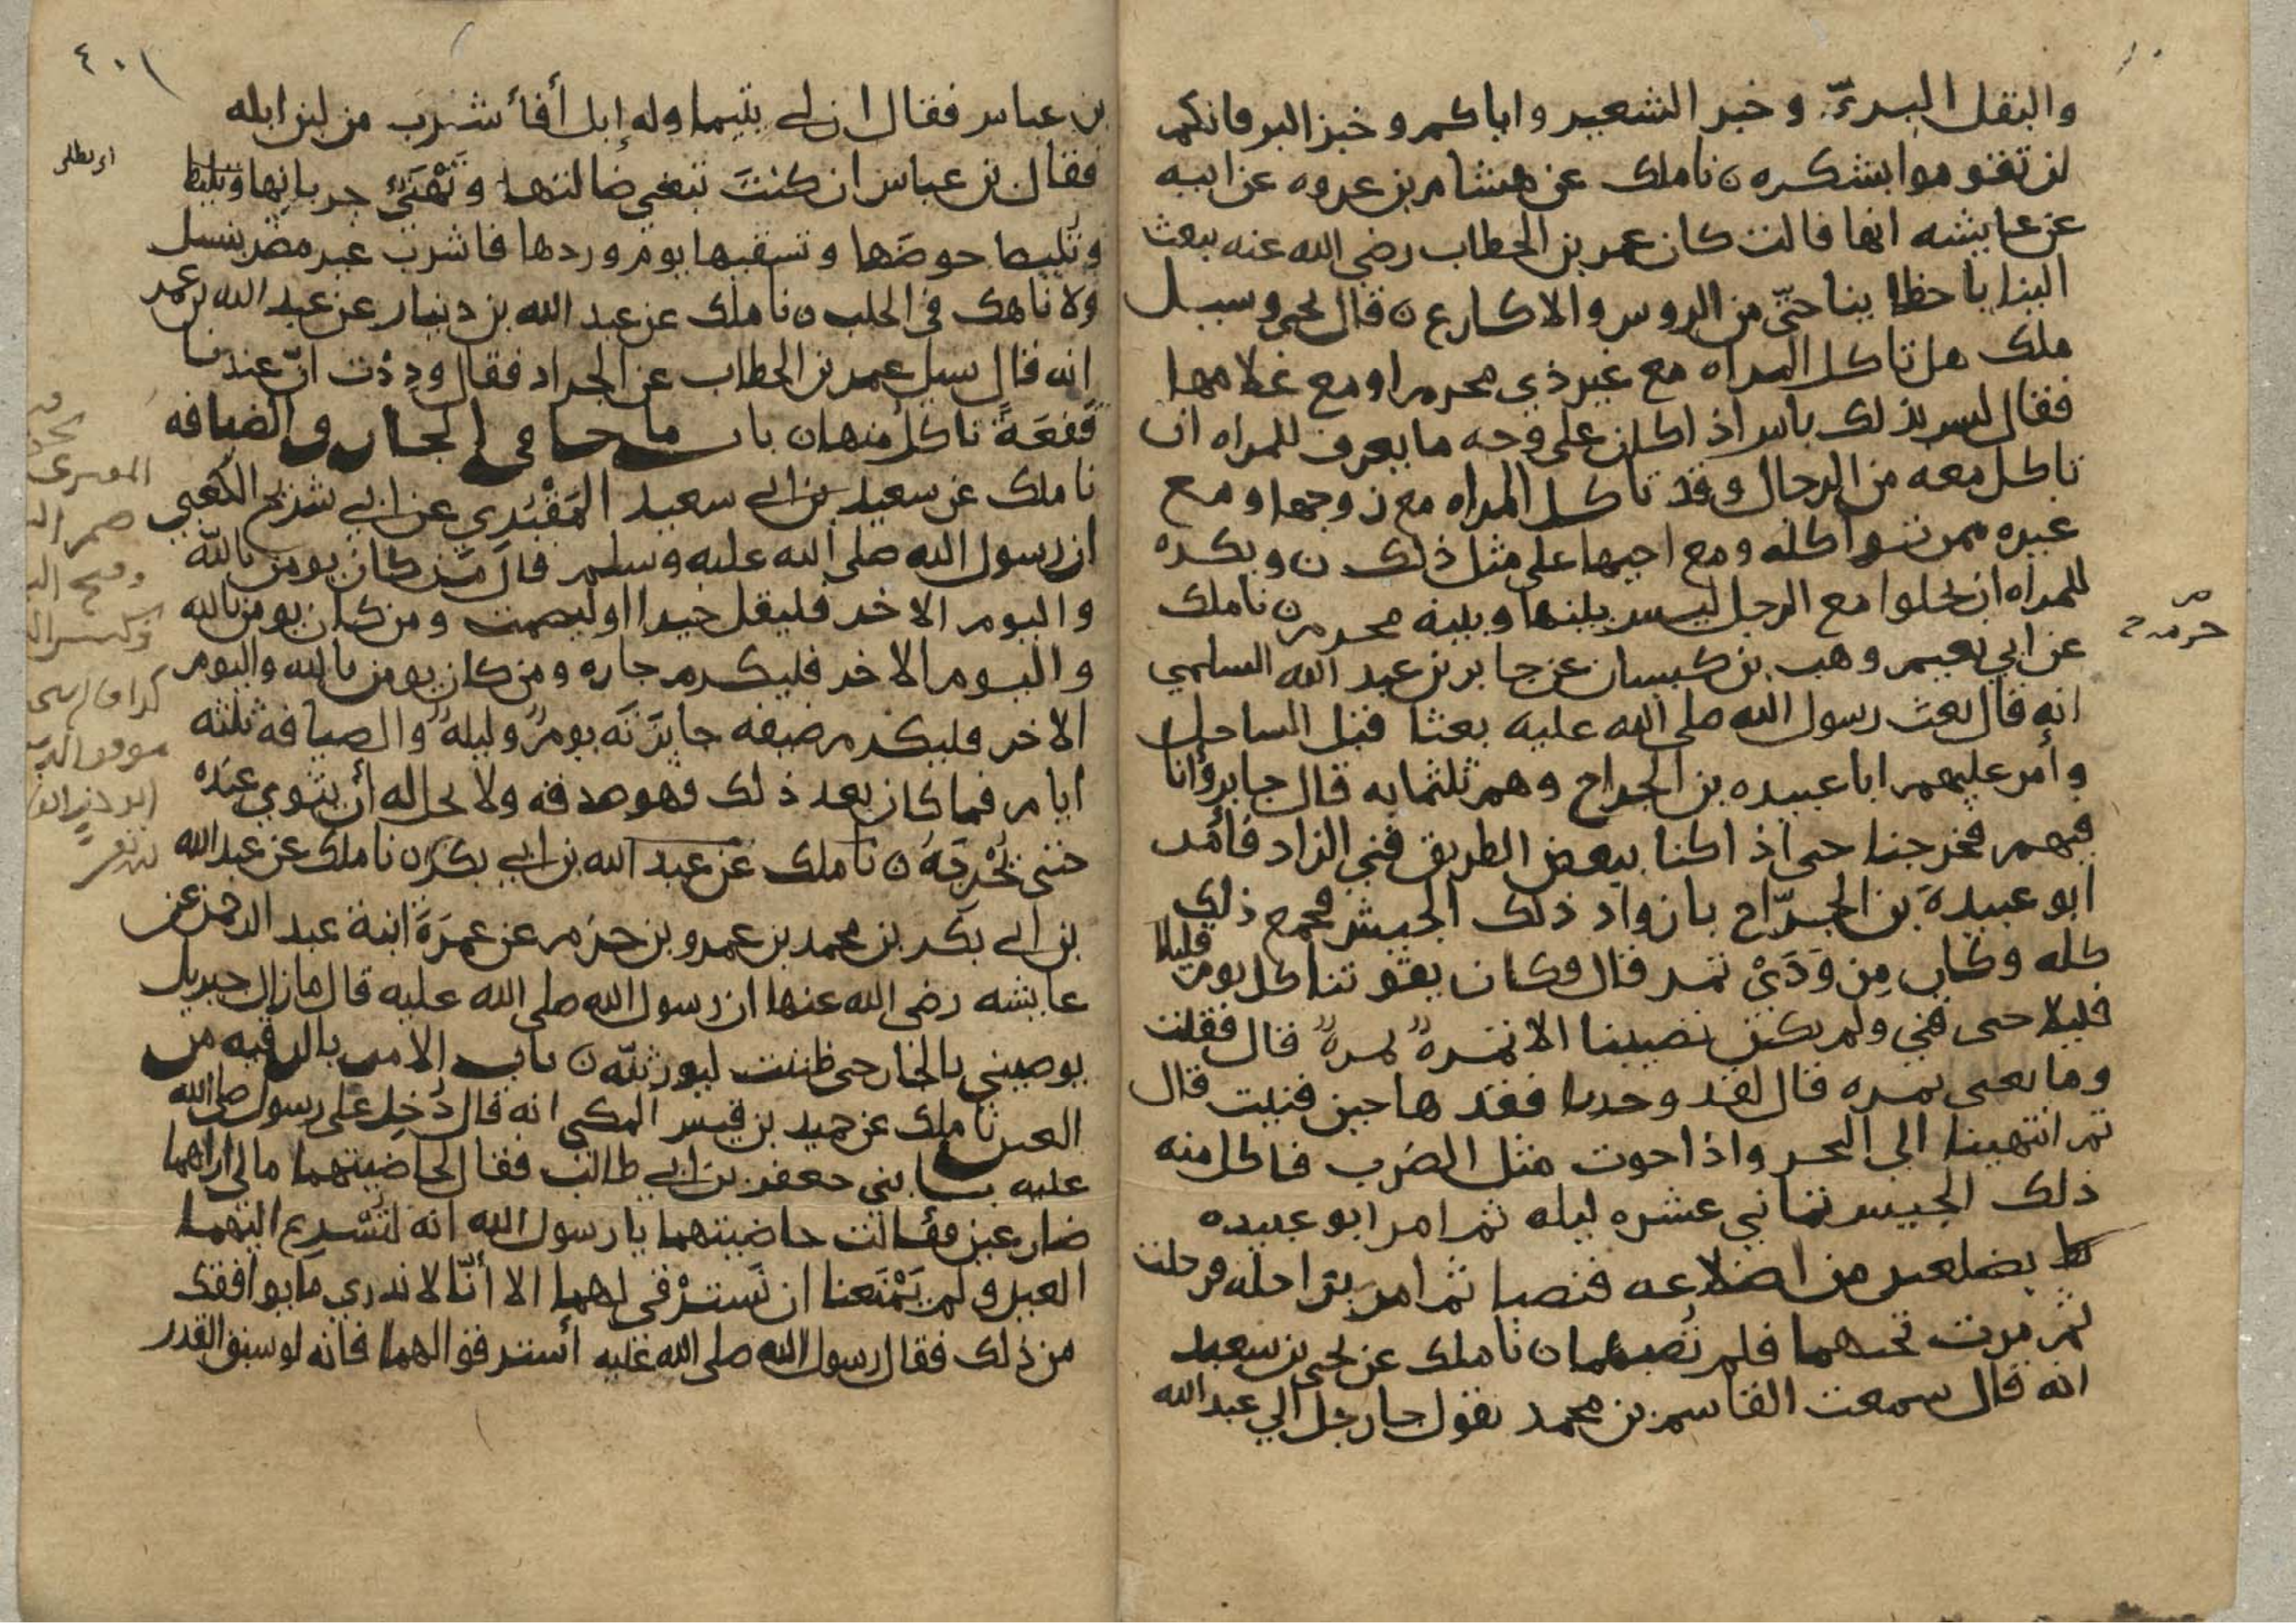 والبقل البري وخبز الشعير واياكم وخبز البر فانكم
لن تقوموا بشكره ن نا ملك عن هشام بن عروه عن ابيه
عن عايشه انها قالت كان عمر بن الخطاب رضي الله عنه يبعث
الينا باحظاينا حتّى من الروس والاكارع ن قال يحيى وسيل
ملك هل تاكل المراه مع غير ذي محرم او مع غلامها
فقال ليس بذلك باس اذا كان على وجه ما يعرف للمراه ان
تاكل معه من الرجال وقد تاكل المراه مع زوجها ومع
غيره ممن تواكله ومع اخيها على مثل ذلك ن ويكره
للمراه ان تخلوا مع الرجل ليس بينها وبينه محرم ن نا ملك
عن ابي نعيم وهب بن كيسان عن جابر بن عبد الله السلمي
انه قال بعث رسول الله صلى الله عليه بعثا قبل الساحل
وأمر عليهم ابا عبيده بن الجراح وهم ثلثمايه قال جابر وأنا
فيهم فخرجنا حتى اذا كنا ببعض الطريق فني الزاد فأمر
ابو عبيدة بن الجرّاح بازواد ذلك الجيش فجمع ذلك
كله وكان مِزوَدَيْ تمر قال وكان يقوتنا كل يوم قليلا
قليلا حتى فني ولم يكن نصيبنا الا تمرةٌ تمرةٌ قال فقلت
وما يعني تمره قال لقد وجدنا فقدها حين فنيت قال
ثم انتهينا الى البحر واذا حوت مثل الظرب فاكل منه
ذلك الجيش ثماني عشره ليله ثم امر ابو عبيده
بضلعين من اضلاعه فنصبا ثم امر براحله فرحلت
ثم مرت تحتهما فلم تُصبهما ن نا ملك عن يحيى بن سعيد
انه قال سمعت القاسم بن محمد يقول جا رجل الي عبد الله
٤٠١
بن عباس فقال ان لي يتيما وله إبل أفأشرب من لبن ابله
فقال بن عباس ان كنتَ تبغي ضالتها وتَهْنَئُ جرباتها وتليط
وتليط حوضها وتسقيها يوم وردها فاشرب غير مضر بنسل
ولا ناهك في الحلب ن نا ملك عن عبد الله بن دينار عن عبد الله بن عمر
انه قال سيل عمر بن الخطاب عن الجراد فقال ودِدْت انّ عندنا
قَفعَةً ناكل منها ن باب ما جا في الجار والضيافه
نا ملك عن سعيد بن ابي سعيد المَقْبُرِي عن ابي شريح الكعبي
ان رسول الله صلى الله عليه وسلم قال مَن كان يومن بالله
واليوم الاخر فليقل خيرا او ليصمت ومن كان يومن بالله
واليوم الاخر فليكرم جاره ومن كان يومن بالله واليوم
الاخر فليكرم ضيفه جايزَته يومٌ وليلهٌ والضيافه ثلثه
ايام فما كان بعد ذلك فهو صدقه ولا يحل له أن يثوي عنده
حتى يُحْرِجَهُ ن نا ملك عن عبد الله بن ابي بكر ن نا ملك عن عبد الله
بن ابي بكر بن محمد بن عمرو بن حزم عن عمرَةَ ابنة عبد الرحمن عن
عايشه رضي الله عنها ان رسول الله صلى الله عليه قال ما زال جبريل
يوصيني بالجار حتى ظننت ليورثنّه ن باب الامر بالرقيه من
العين نا ملك عن حميد بن قيس المكي انه قال دُخِل على رسول الله صلى الله
عليه بابني جعفر بن ابي طالب فقال لحاضنتهما مالي اراهما
ضارعين فقالت حاضنتهما يا رسول الله انه لتُسْرِع اليهما
العين ولم يَمْنَعنا ان نَسترْقي لهما الا أنّا لا ندري ما يوافقك
من ذلك فقال رسول الله صلى الله عليه أسترقوا لهما فانه لو سبق القدر